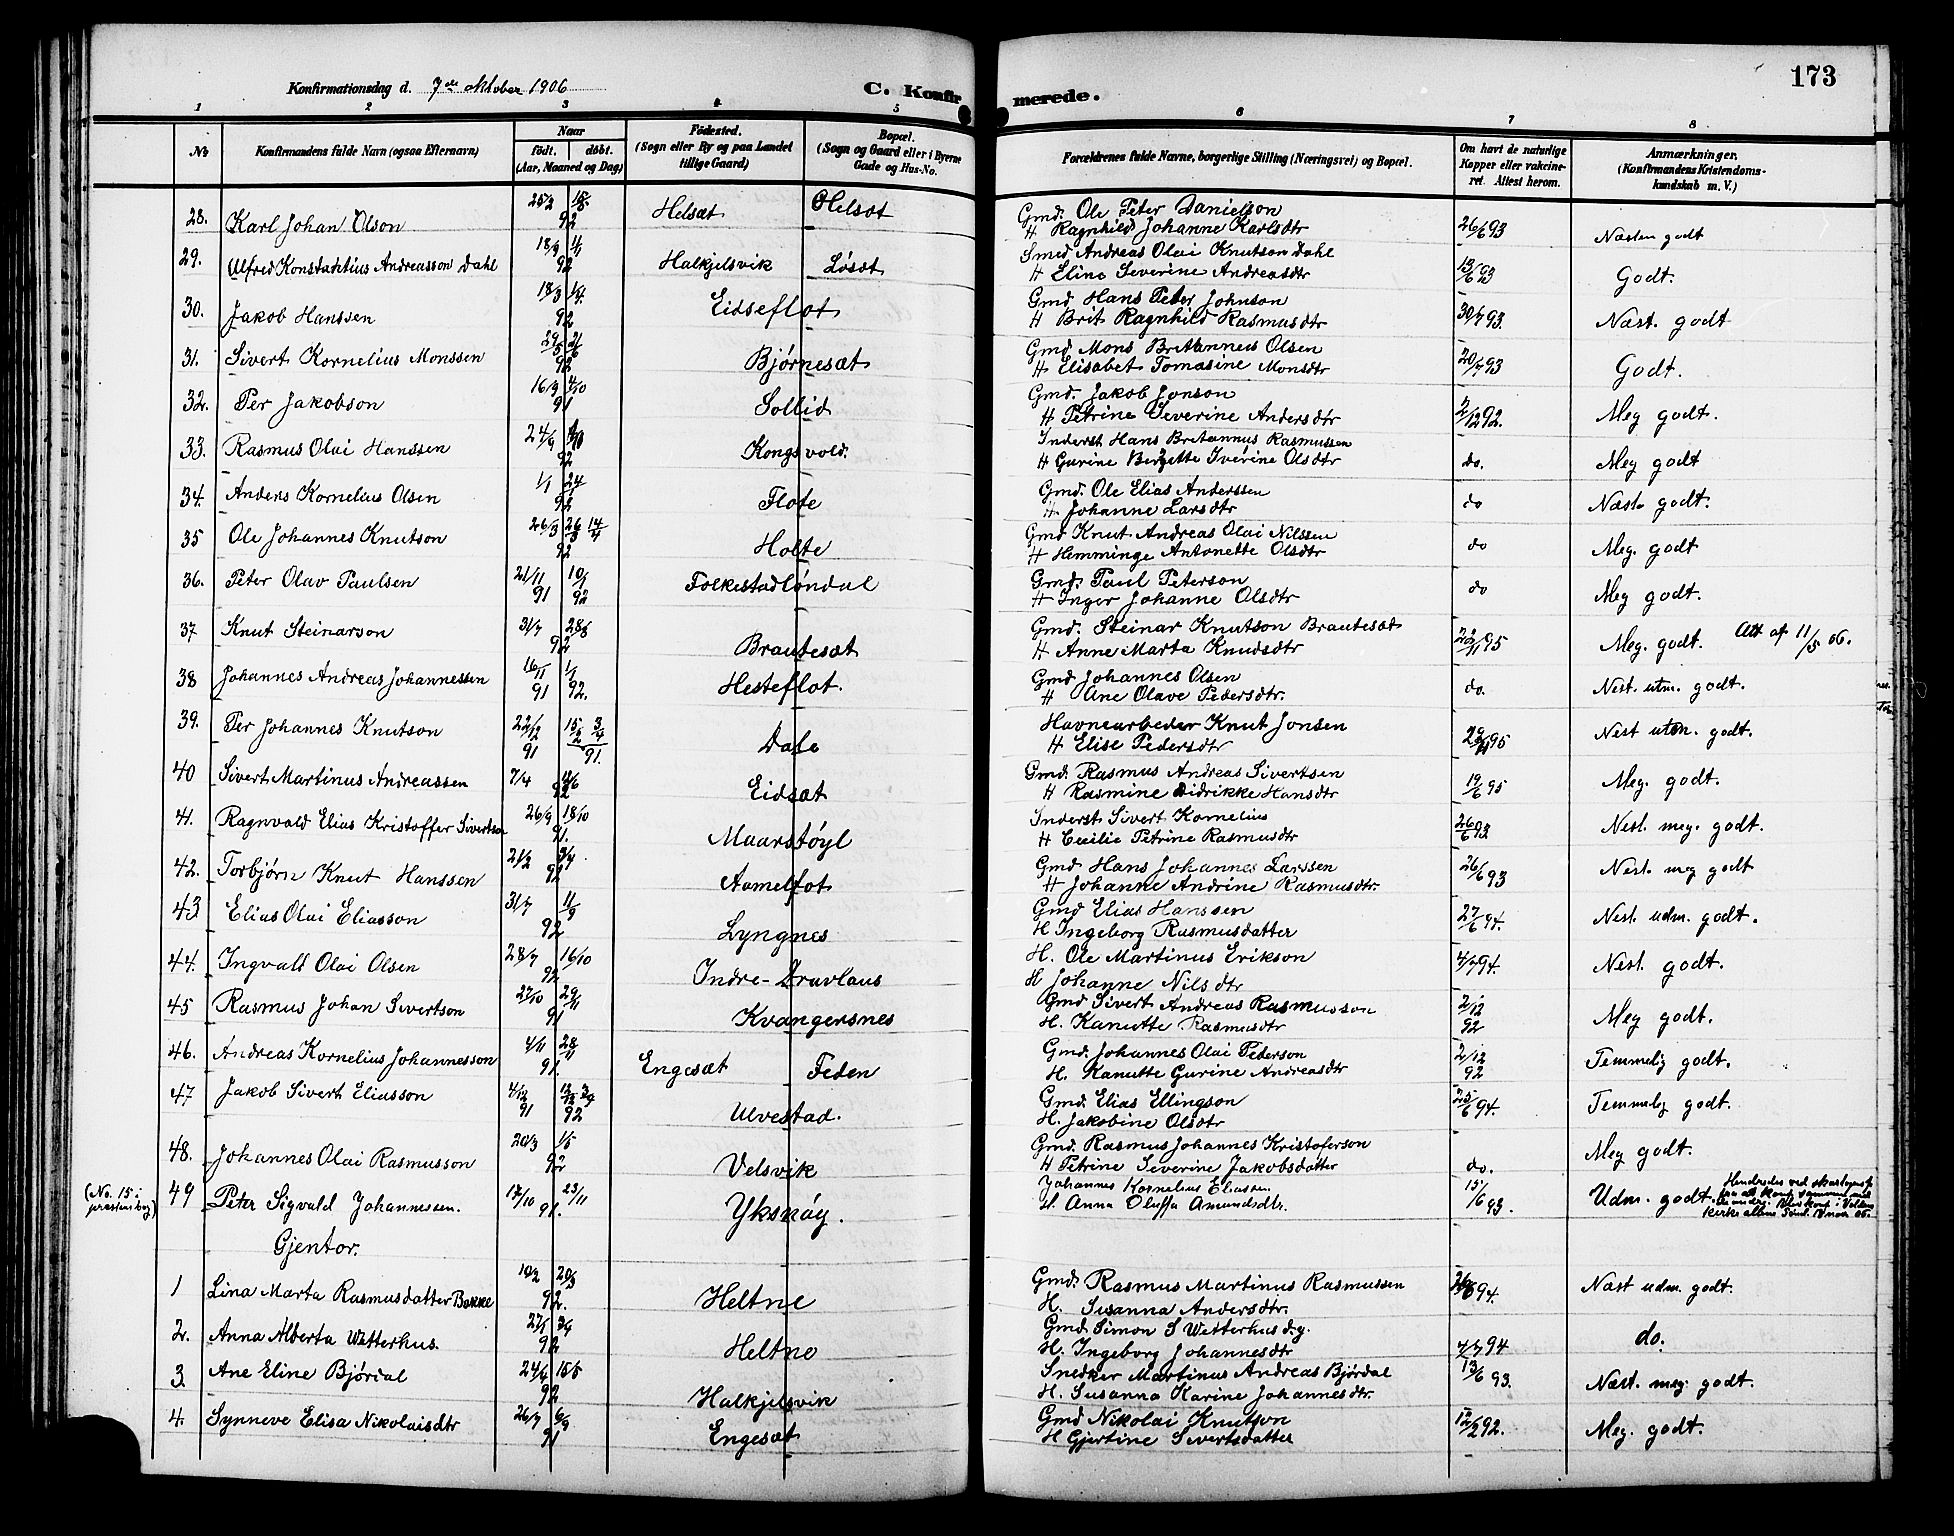 173
Konfirmationsdag d. 7de oktober 1906
C. Konfirmerede.
1 2 3 4 5 6 7 8
No
Konfirmandens fulde Navn (ogsaa Efternavn)
Naar
født. døbt.
(Aar, Maaned og Dag)
Fødested.
(Sogn eller By og paa Landet
tillige Gaard)
Bopæl.
(Sogn og Gaard eller i Byerne
Gade og Hus-No.
Forældrenes fulde Navne, borgerlige Stilling (Næringsvei) og Bopæl.
Om havt de naturlige
Kopper eller vakcine-
ret. Attest herom.
Anmærkninger.
(Konfirmandens Kristendoms-
kundskab m. V.)
28. Karl Johan Olson 92 Helsæt Helsæt Gmd. Ole Peter Danielson 26/6 93 Næsten godt
H Ragnhild Johanne Karlsdtr
29. Alfred Konstantius Andreasson Dahl 18/9 92 Halkjelsvik Løsæt Smed Andreas Olai Knutson Dahl 13/6 93 Godt.
H Eline Severine Andreasdtr
30. Jakob Hanssen 18/3 92 Eidseflot Gmd. Hans Peter Johnson 30/7 93. Næst. godt
H Brit Ragnhild Rasmusdtr
31. Sivert Kornelius Monssen 29/5 92 Bjørnesæt Gmd Mons Britannus Olsen 20/7 93 Godt.
H Elisabet Tomasine Monsdtr
32. Per Jakobson 16/9 4/10 91 Sollid Gmd. Jakob Jonson 2/12 92. Meg godt.
H Petrine Severine Andersdtr
33. Rasmus Olai Hanssen 24/9 92 Kongsvold. Inderst Hans Britannus Rasmussen do. Meg godt
H Gurine Bergette Iverine Olsdtr
34. Anders Kornelius Olsen 1/1 24/ 92 Flote Gmd. Ole Elias Anderssen do Næst. godt.
H. Johanne Larsdtr
35 Ole Johannes Knutson 26/3 26/3 14/4 92 Holte Gmd Knut Andreas Olai Nilssen do Meg. godt
H Hemminge Antonette Olsdtr
36. Peter Olav Paulsen 21/11 91 10/1 92 Folkestadløndal Gmd. Paul Peterson do Meg godt.
H Inger Johanne Olsdtr
37 Knut Steinarson 31/7 28/8 92 Brautesæt Gmd. Steinar Knutson Brautesæt 22/11 95 Meg. godt. Att af 11/5 06.
H Anne Marta Knudsdtr
38 Johannes Andreas Johannessen 16/11 91 1/1 92. Hesteflot. Gmd Johannes Olsen do. Nest. utm. godt.
H Ane Olave Pedersdtr.
39. Per Johannes Knutson 22/2 91 15/2 3/4 91. Dale Havnearbeder Knut Jonsen 95 Nest utm. godt.
H Elise Pedersdtr
40 Sivert Martinus Andreassen 7/4 92 Eidsæt Gmd. Rasmus Andreas Sivertsen 19/6 95 Meg. godt.
H Rasmine Didrikke Hansdtr
41. Ragnvald Elias Kristoffer Sivertson 26/9 18/10 91. Maarstøyl Inderst Sivert Kornelius 26/6 93 Nest. meg. godt.
H Cecilie Petrine Rasmusdtr
42. Torbjørn Knut Hanssen 21/2 92 Aamelfot Gmd Hans Johannes Larssen 26/6 93 Nest. meg godt
H Johanne Andrine Rasmusdtr.
43 Elias Olai Eliasson 31/7 11/9 92 Lyngnes Gmd Elias Hanssen 27/6 94. Nest. udm. godt.
H Ingeborg Rasmusdatter
44. Ingvalt Olai Olsen 28/7 16/10 92 Indre-Dravlaus H. Ole Martinus Erikson 4/7 94. Nest. godt.
H Johanne Nilsdtr
45 Rasmus Johan Sivertson 27/10 29/11 91 Kvangersnes Gmd Sivert Andreas Rasmusson 2/12 92 Meg godt.
H. Kanutte Rasmusdtr
46. Andreas Kornelius Johannesson 4/11 28/11 91. Engesæt Feden Gmd. Johannes Olai Pederson 2/12 92 Temmelig godt.
H. Kanutte Gurine Andreasdtr
47 Jakob Sivert Eliasson 4/12 91 92 Ulvestad. Gmd. Elias Ellingson 25/6 94. Temmelig godt.
H. Jakobine Olsdtr
48. Johannes Olai Rasmusson 20/3 1/5 92 Velsvik Gmd. Rasmus Johannes Kristoferson do. Meg godt.
H Petrine Severine Jakobsdatter
(No. 15 i prestens bog) 49 Peter Sigvald Johannessen. 17/10 23/11 91. Yksnøy. Johannes Kornelius Eliassen 15/6 93. Udm. godt.
H. Anna Oluffa Amundsdtr.
Gjentor.
1 Lina Marta Rasmusdatter Bakke 10/2 20/3 92. Heltne Gmd. Rasmus Martinus Rasmussen 94. Næst udm. godt.
H. Susanna Andersdtr.
2. Anna Alberta Wetterhus. 27/1 92 Heltne Gmd Simon S Wetterhus d.y. 4/7 94 do.
H. Ingeborg Johannesdtr
3 Ane Eline Bjørdal 24/4 15/5 92 Halkjelsvik Snedker Martinus Andreas Bjørdal 13/6 93. Næst. meg. godt.
H. Susanna Karine Johannesdtr.
4. Synneve Elisa Nikolaisdtr 26/7 6/9 91 Engesæt Gmd Nikolai Knutson 12/2 92. Meg. godt.
H Gjertine Sivertsdatter